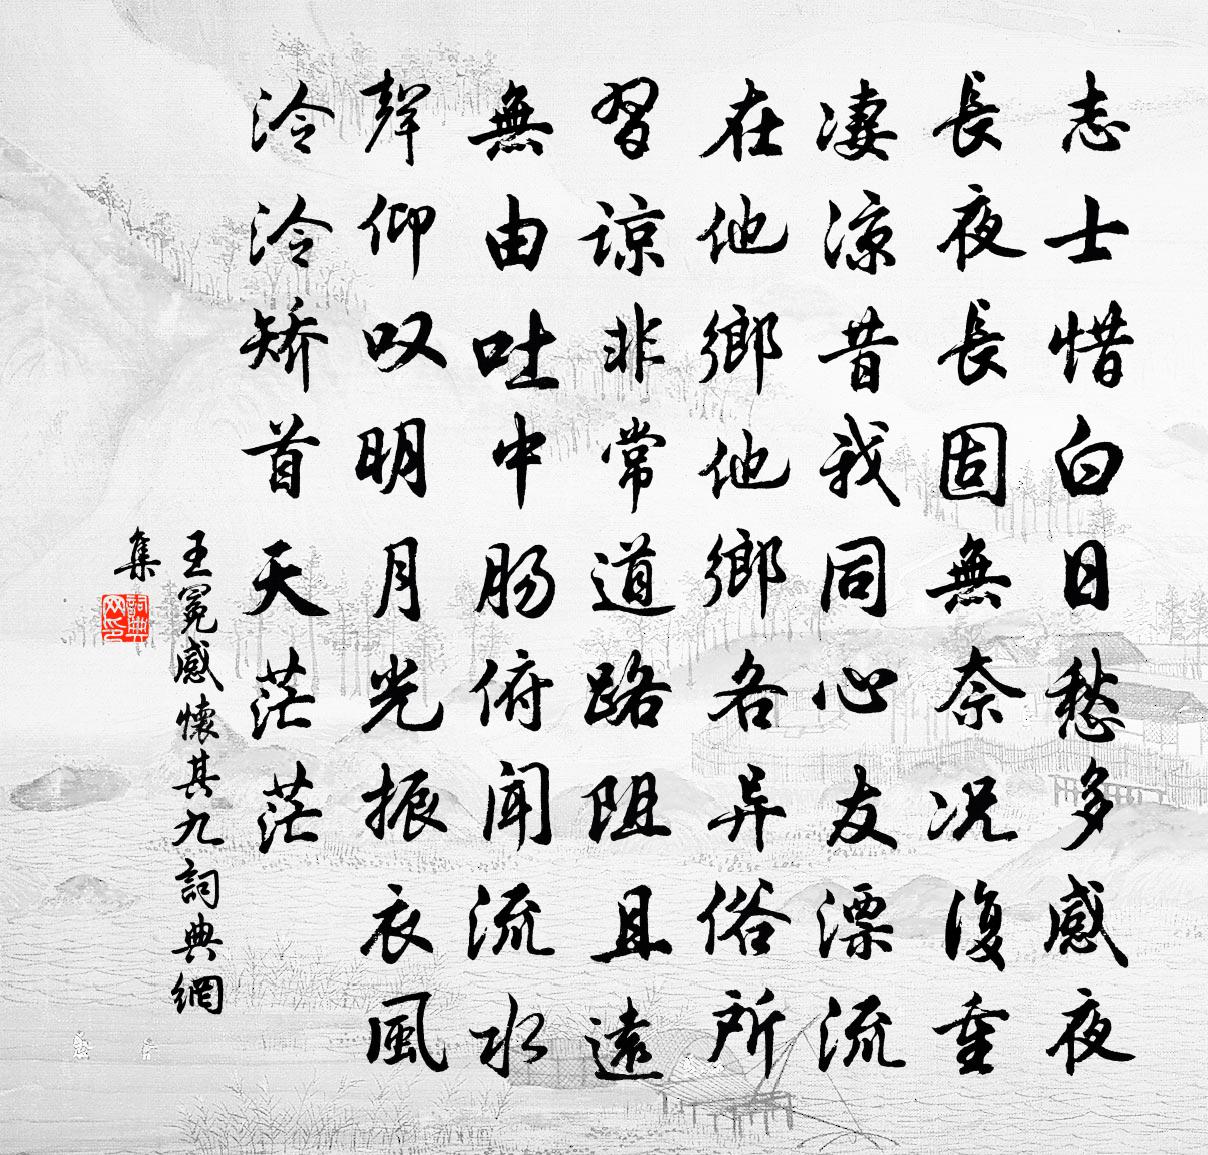 志士惜白日愁多感夜
長夜長固無奈况復重
凄涼昔我同心友漂流
在他鄉他鄉各异俗所
習諒非常道路阻且遠
無由吐中肠俯闻流水
聲仰叹明月光振衣風
泠泠矫首天茫茫
王冕感懷其九詞典網
集
詞典
网印